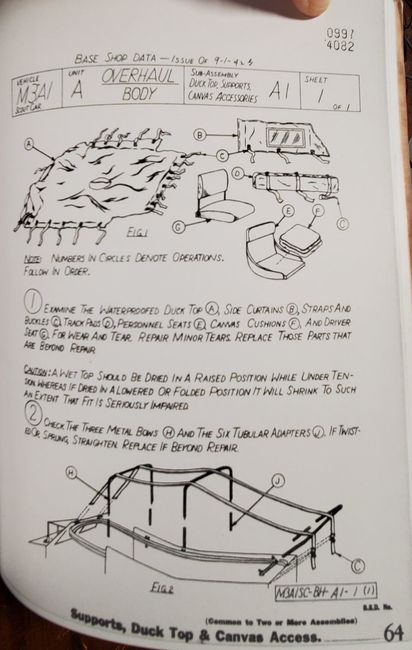 0997
4082
BASE SHOP DATA — ISSUE OF 9-1-42
VEHICLE
M3A1
SCOUT CAR
UNIT
A
OVERHAUL
BODY
SUB-ASSEMBLY
DUCK TOP, SUPPORTS,
CANVAS ACCESSORIES
A1
SHEET
1
OF 1
A
B
C
D
C
G
E
F
FIG.1
NOTE: NUMBERS IN CIRCLES DENOTE OPERATIONS.
FOLLOW IN ORDER.
1 EXAMINE THE WATERPROOFED DUCK TOP A, SIDE CURTAINS B, STRAPS AND
BUCKLES C, TRACK PADS D, PERSONNEL SEATS E, CANVAS CUSHIONS F, AND DRIVER
SEAT G, FOR WEAR AND TEAR. REPAIR MINOR TEARS. REPLACE THOSE PARTS THAT
ARE BEYOND REPAIR.
CAUTION: A WET TOP SHOULD BE DRIED IN A RAISED POSITION WHILE UNDER TEN-
SION WHEREAS IF DRIED IN A LOWERED OR FOLDED POSITION IT WILL SHRINK TO SUCH
AN EXTENT THAT FIT IS SERIOUSLY IMPAIRED
2 CHECK THE THREE METAL BOWS H AND THE SIX TUBULAR ADAPTERS J. IF TWIST-
ED OR SPRUNG, STRAIGHTEN. REPLACE IF BEYOND REPAIR.
H
J
C
FIG.2
M3A1SC-BH A1-1 (1)
B.S.D. No.
(Common to Two or More Assemblies)
Supports, Duck Top & Canvas Access.
64